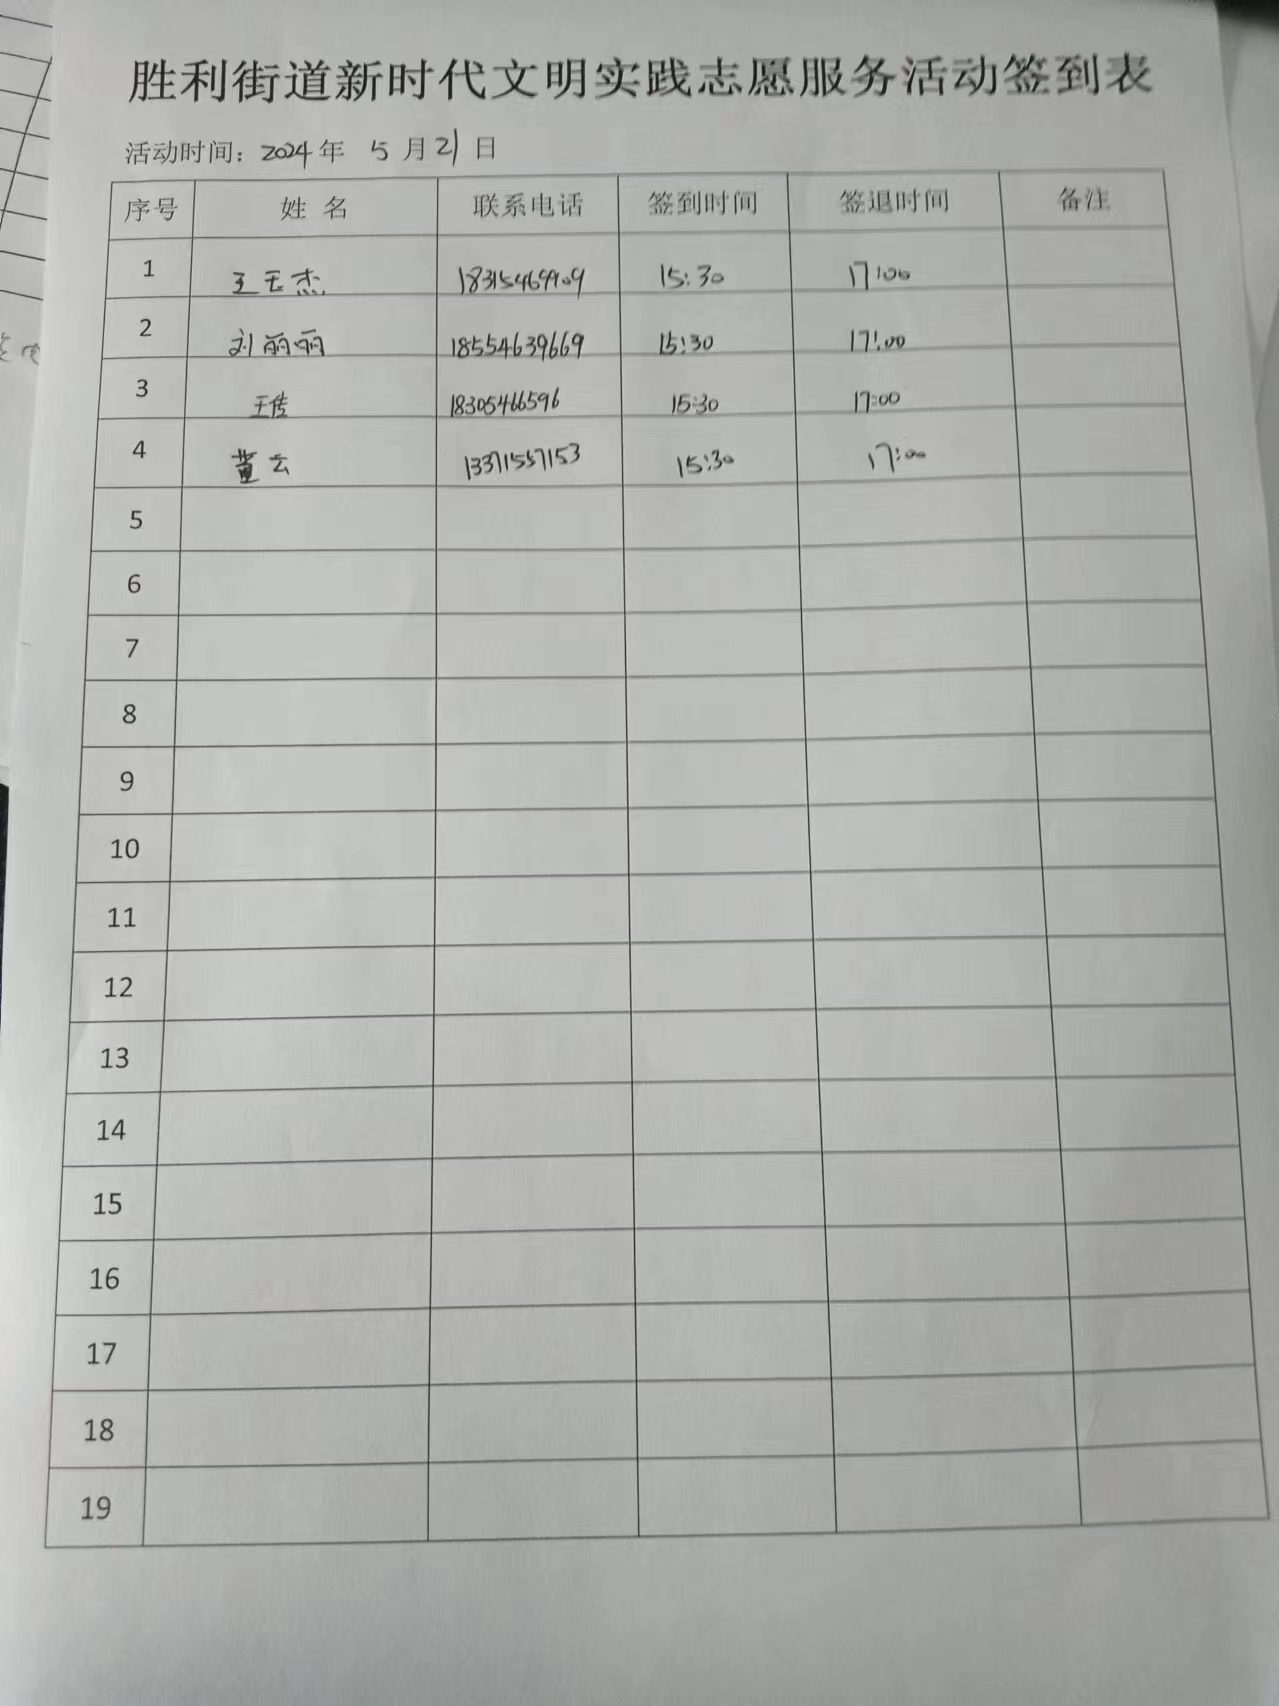 胜利街道新时代文明实践志愿服务活动签到表
活动时间：2024年 5 月 21 日
序号 姓 名 联系电话 签到时间 签退时间 备注
1 王玉杰 18315469909 15:30 17:00
2 刘丽丽 18554639669 15:30 17:00
3 王传 18305466596 15:30 17:00
4 董云 13371557153 15:30 17:00
5
6
7
8
9
10
11
12
13
14
15
16
17
18
19